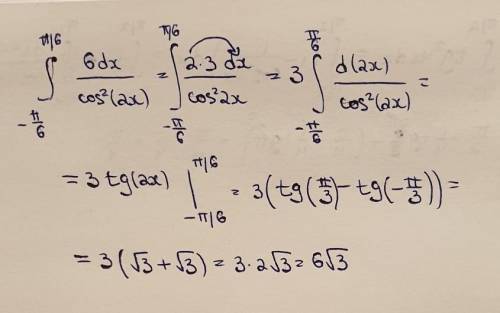 ∫_{-π/6}^{π/6} 6dx / cos²(2x) = ∫_{-π/6}^{π/6} 2·3 dx / cos²2x = 3 ∫_{-π/6}^{π/6} d(2x) / cos²(2x) =
= 3 tg(2x) |_{-π/6}^{π/6} = 3(tg(π/3) - tg(-π/3)) =
= 3(√3 + √3) = 3·2√3 = 6√3